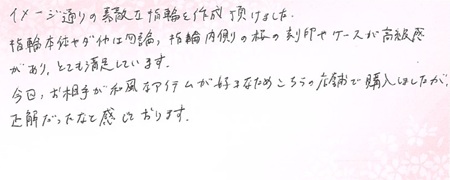 イメージ通りの素敵な指輪を作成頂けました。
指輪本体やダイヤは勿論、指輪内側の桜の刻印やケースが高級感
があり、とても満足しています。
今回、お相手が和風なアイテムが好きなためこちらの店舗で購入しましたが、
正解だったなと感じております。